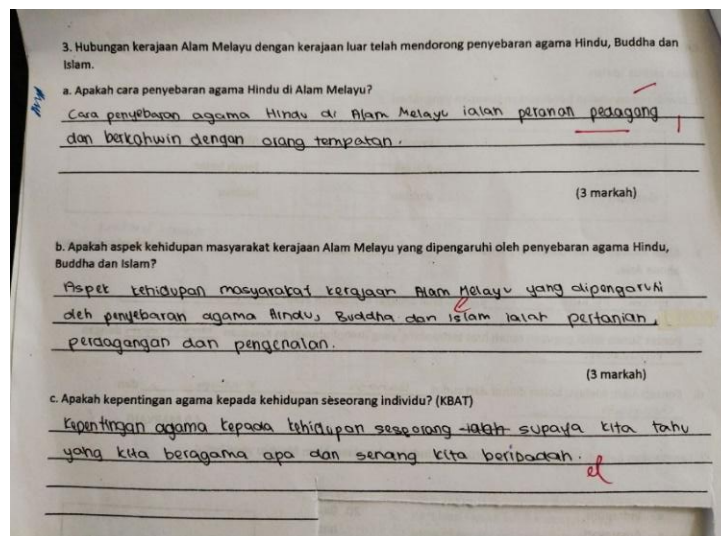 3. Hubungan kerajaan Alam Melayu dengan kerajaan luar telah mendorong penyebaran agama Hindu, Buddha dan
Islam.
a. Apakah cara penyebaran agama Hindu di Alam Melayu?
Cara penyebaran agama Hindu di Alam Melayu ialah peranan pedagang
dan berkahwin dengan orang tempatan.
(3 markah)
b. Apakah aspek kehidupan masyarakat kerajaan Alam Melayu yang dipengaruhi oleh penyebaran agama Hindu,
Buddha dan Islam?
Aspek kehidupan masyarakat kerajaan Alam Melayu yang dipengaruhi
oleh penyebaran agama Hindu, Buddha dan Islam ialah pertanian,
perdagangan dan pengenalan.
(3 markah)
c. Apakah kepentingan agama kepada kehidupan seseorang individu? (KBAT)
Kepentingan agama kepada kehidupan seseorang ialah supaya kita tahu
yang kita beragama apa dan senang kita beribadah.